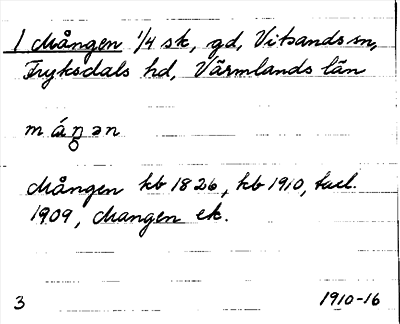 1 Mången 1/4 sk, gd, Vitsands sn,
Fryksdals hd, Värmlands län
m á n̥ ə n
Mången kb 1826, kb 1910, tucl.
1909, Mangen ek.
3 1910-16